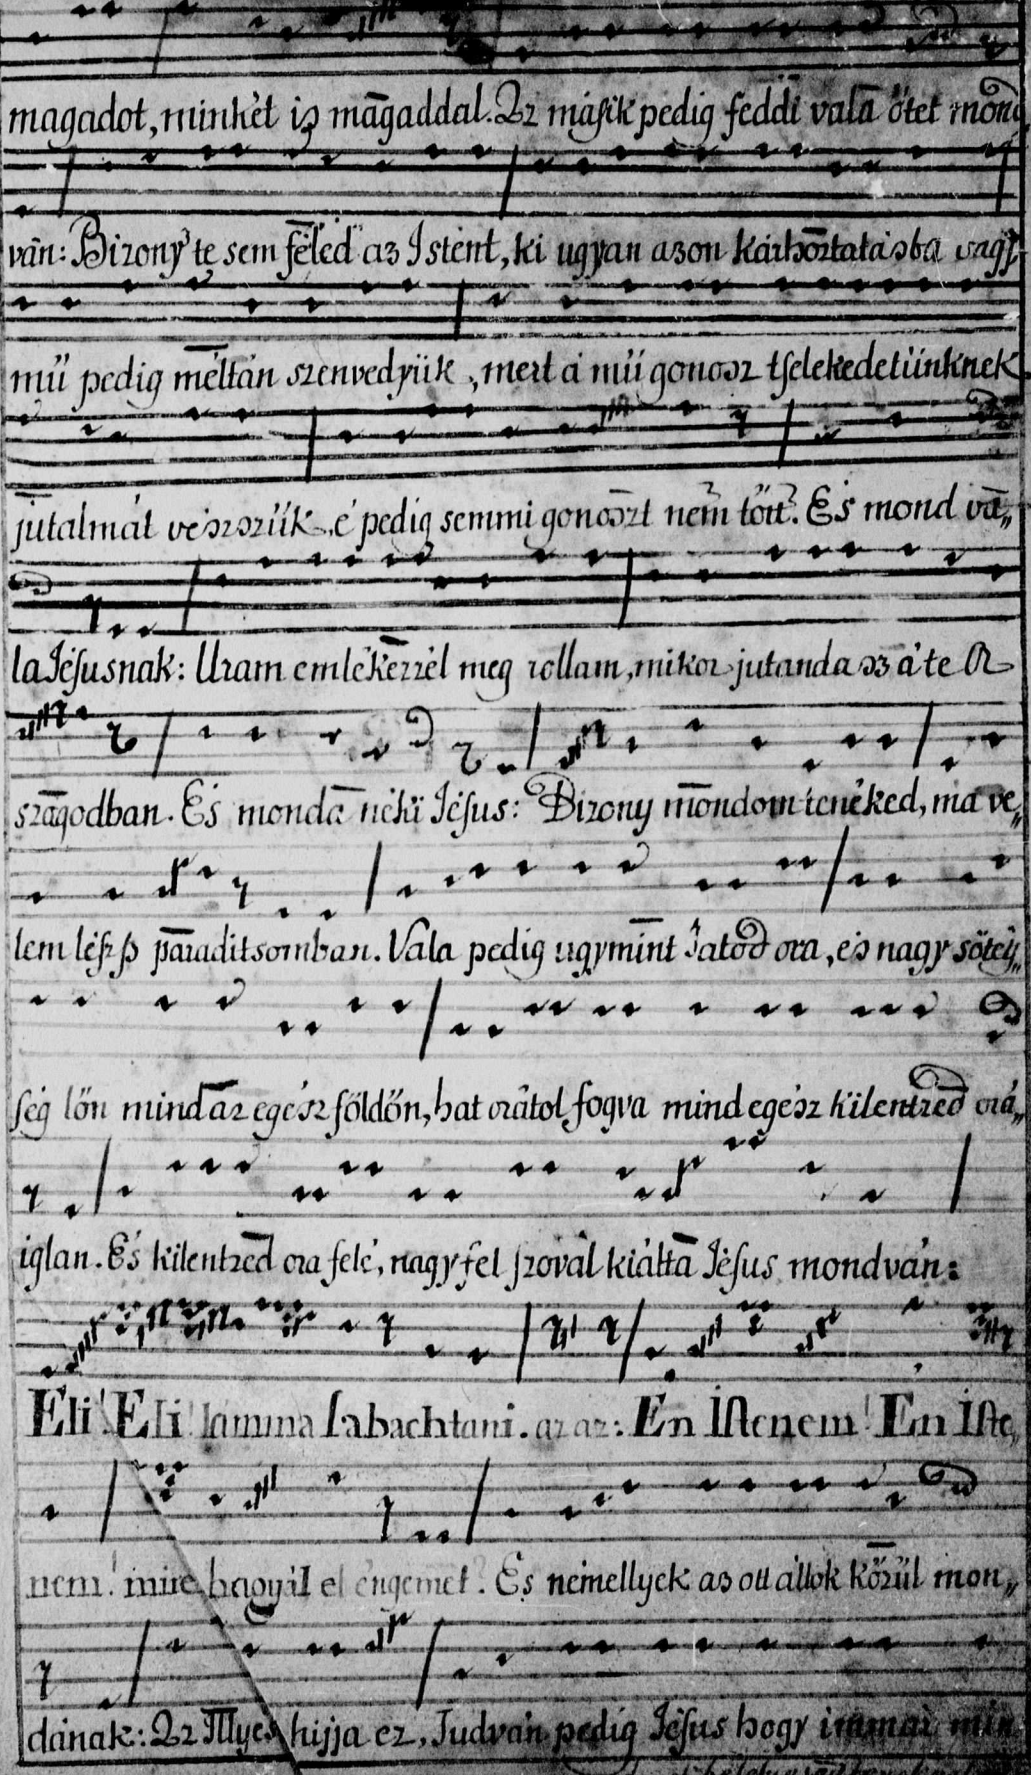 magadot, minkèt iş māgaddal. Az máſik pedig feddi vala ötet mond
ván: Bizony te sem féled az Istent, ki ugyan azon kárhoztatásba vagy,
mü pedig méltán szenvedyük, mert a mü gonosz tselekedetünknek
jutalmát vészszük, é pedig semmi gonoszt nem tött. És mond vá„
la Jésusnak: Uram emlékezzél meg rollam, mikor jutanda sz á te Or
szágodban. És monda néki Jésus: Bizony mondom tenéked, ma ve„
lem léſz þ paraditsomban. Vala pedig ugymint hatod ora, és nagy sötéţ„
ſég lön mind az egész földön, hat orátol fogva mind egész kilentzed orá„
iglan. És kilentzed ora felé, nagy fel ſzovál kiálta Jésus mondván:
Eli! Eli! lamma ſabachtani. az az: En Iſtenem! En Iſte„
nem! mire hagyál el engemet? És némellyek az ott állok közül mon„
dának: Az Illyes hijja ez, Tudván pedig Jésus hogy immár min